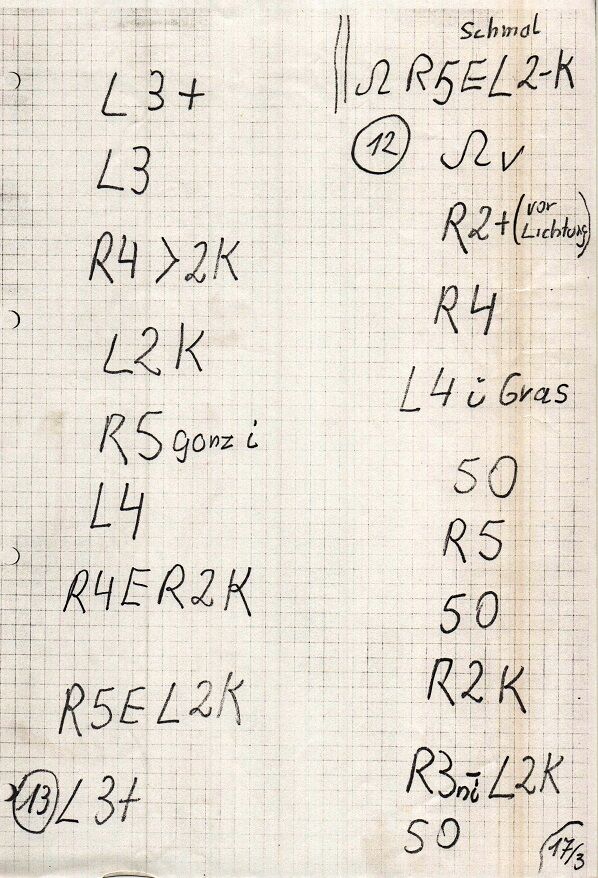 L3+
L3
R4 > 2K
L2K
R5 ganz i
L4
R4ER2K
R5EL2K
13 L3+
Schmal
Ω R5EL2-K
12 Ω v
R2+ (vor Lichtung)
R4
L4 i Gras
50
R5
50
R2K
R3 ni L2K
50
17/3